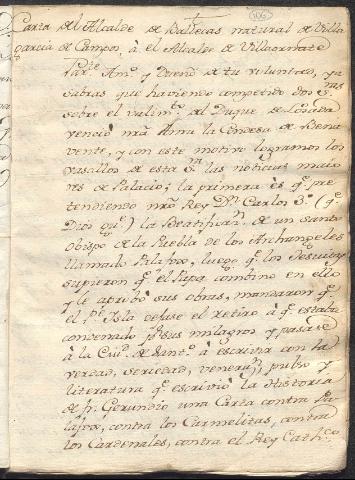 106
Carta del Alcalde de Ballecas natural de Villa
garcia de Campos, à el Alcalde de Villaornate
Par.te Am.o y Dueño de tu voluntad, ya
sabras que haviendo competido dos S.ras
sobre el valim.to del Duque de Losada
venció nrã Ama la Condesa de Bena
vente, y con este motivo logramos los
vasallos de esta S.ra las noticias maio
res de Palacio; la primera es q.e pre
tendiendo nrõ Rey D.n Carlos 3.o (q.e
Dios gu.e) la Beatificaz.n de un santo
obispo de la Puebla de los Archangeles
llamado Palafox, luego q.e los Jesuitas
supieron q.e el Papa combino en ello
y le aprobó sus obras, mandaron q.e
el P.e Isla dejase el retiro à q.e estaba
condenado p.r sus milagros y pasase
à la Ciu.d de Sant.o à escrivir con la
verdad, seriedad, veneraz.n, pulso y
literatura q.e escrivió la Historia
de fr. Gerundio una Carta contra Pa
lafox, contra los Carmelitas, contra
los Cardenales, contra el Rey Cath.co